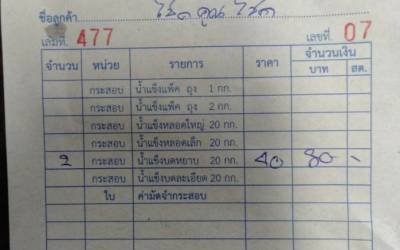 ชื่อลูกค้า โชคคูณโชค
เล่มที่. 477 เลขที่. 07
จำนวน หน่วย รายการ ราคา จำนวนเงิน
บาท สต.
กระสอบ น้ำแข็งแพ็ค ถุง 1 กก.
กระสอบ น้ำแข็งแพ็ค ถุง 2 กก.
กระสอบ น้ำแข็งหลอดใหญ่ 20 กก.
กระสอบ น้ำแข็งหลอดเล็ก 20 กก.
2 กระสอบ น้ำแข็งบดหยาบ 20 กก. 40 80 -
กระสอบ น้ำแข็งบดละเอียด 20 กก.
ใบ ค่ามัดจำกระสอบ